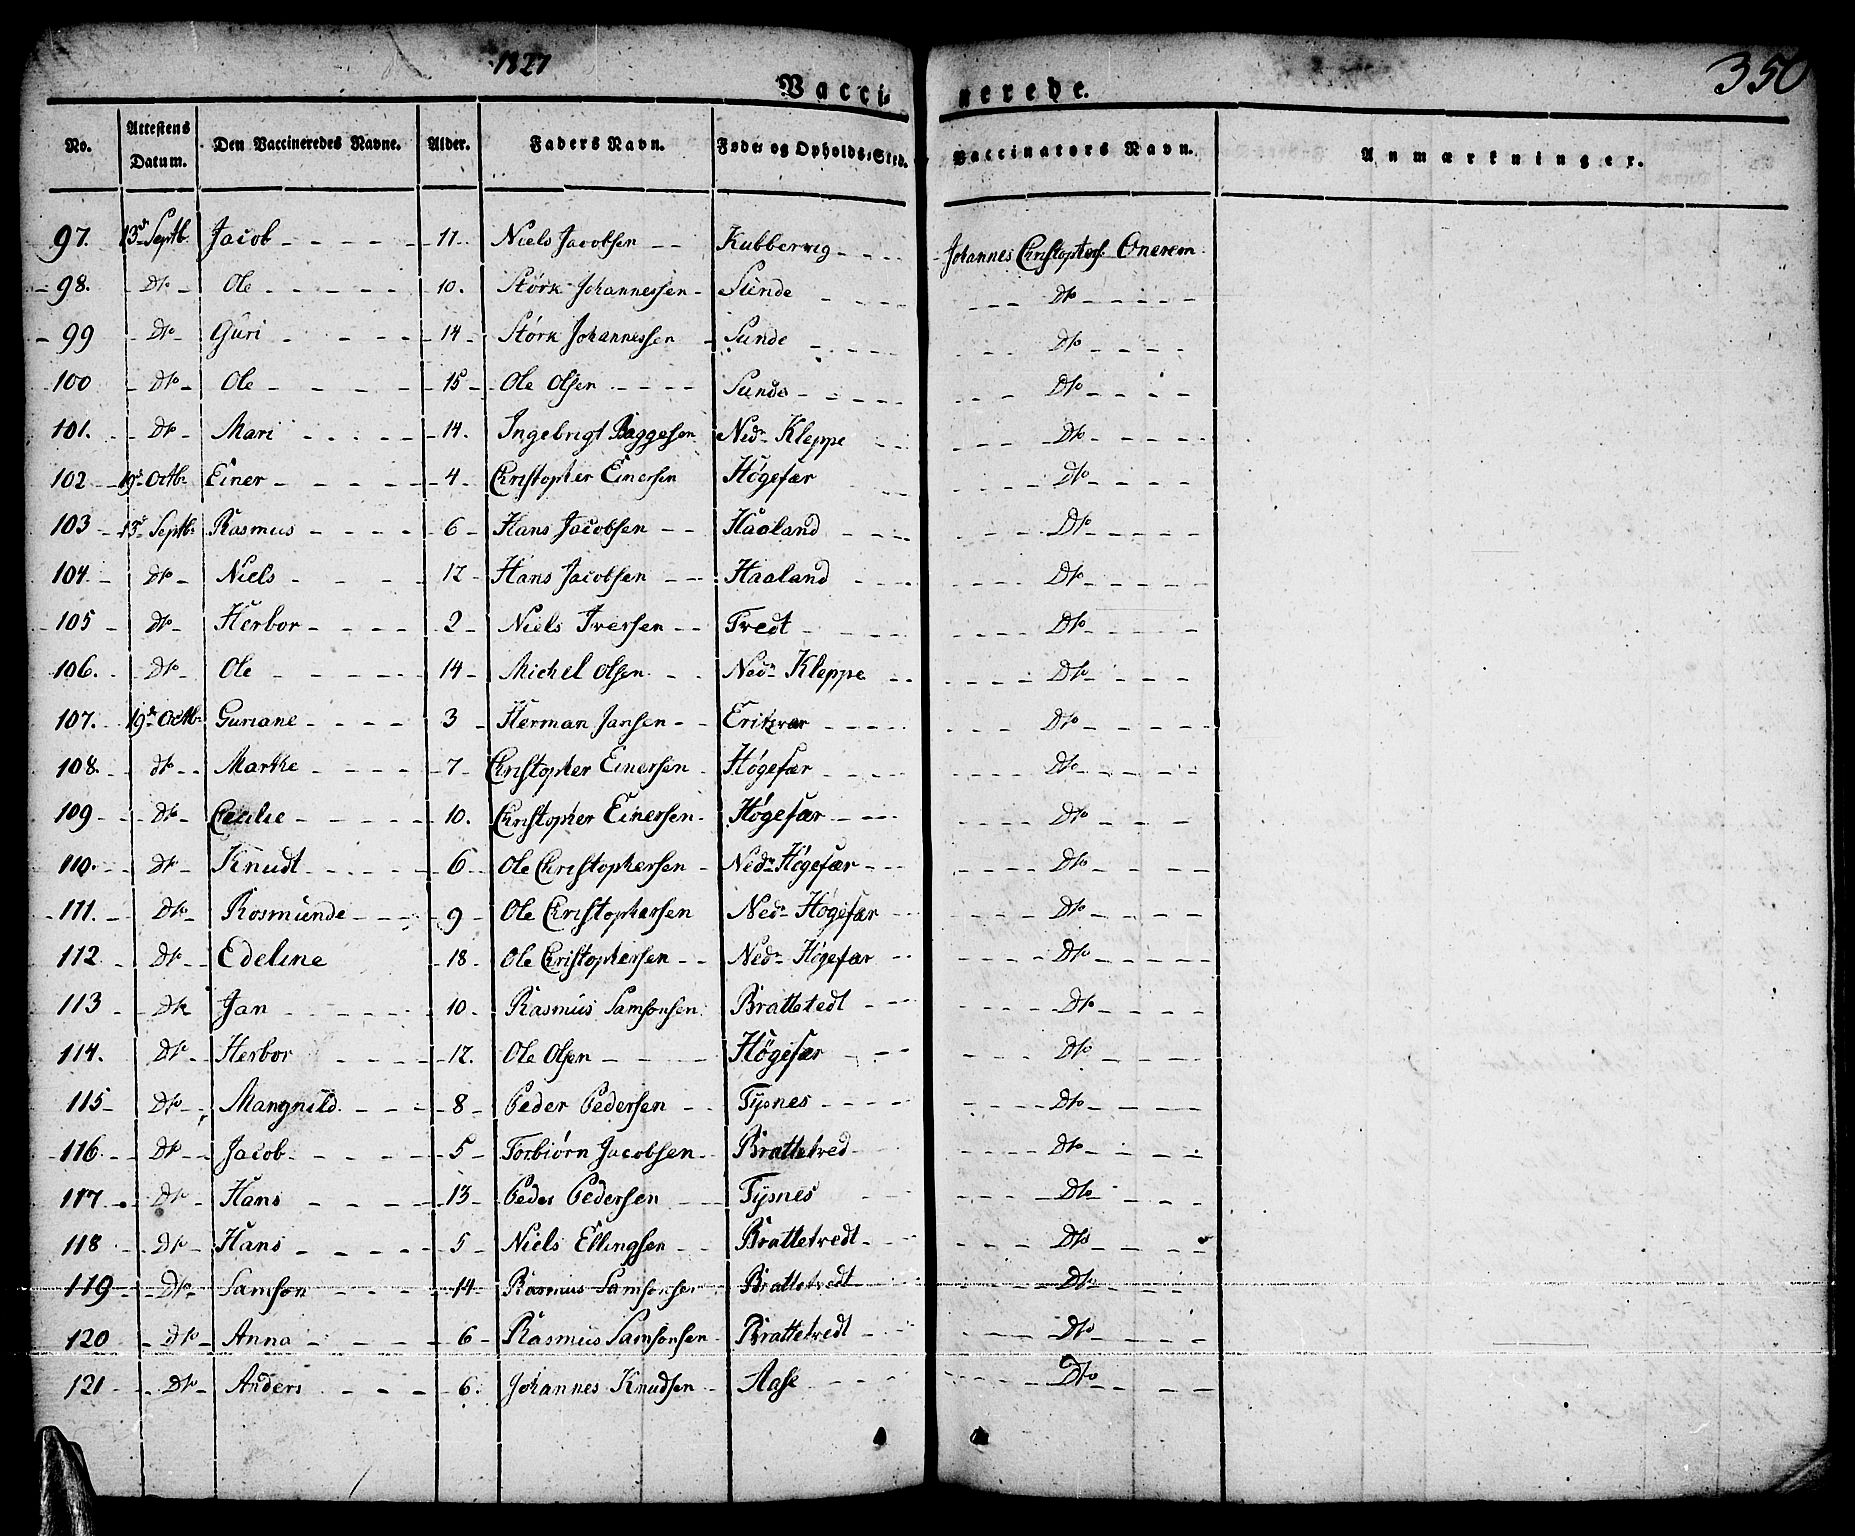 1827
350
Vacci- nerede.
No. | Attestens Datum. | Den Vaccineredes Navne. | Alder. | Faders Navn. | Føde- og Opholds-Sted. | Vaccinators Navn. | Anmærkninger.
97. | 13d Septb | Jacob | 11. | Niels Jacobsen | Kubbervig | Johannes Christophers. Onerem
98. | Do | Ole | 10. | Størk Johannessen | Sunde | Do
99 | Do | Guri | 14 | Størk Johannessen | Sunde | Do
100 | Do | Ole | 15 | Ole Olsen | Sunde | Do
101. | Do | Mari | 14. | Ingebrigt Baggesen | Nedr Kleppe | Do
102 | 19d Octbr | Einer | 4 | Christopher Einersen | Høgefær | Do
103 | 13d Septbr | Rasmus | 6 | Hans Jacobsen | Haaland | Do
104. | Do | Niels | 12 | Hans Jacobsen | Haaland | Do
105 | Do | Herbor | 2 | Niels Iversen | Tvedt | Do
106. | Do | Ole | 14 | Michel Olsen | Nedr Kleppe | Do
107. | 19d Octbr | Guriane | 3 | Herman Jansen | Erikvær | Do
108. | do | Marthe | 7 | Christopher Einersen | Høgefær | Do
109 | Do | Cecilie | 10. | Christopher Einersen | Høgefær | Do
110. | Do | Knudt | 6 | Ole Christophersen | Nedr Høgefær | Do
111. | Do | Rosmunde | 9 | Ole Christophersen | Nedr Høgefær | Do
112 | Do | Edeline | 18 | Ole Christophersen | Nedr Høgefær | Do
113 | Do | Jan | 10 | Rasmus Samsonsen | Brattetedt | Do
114. | Do | Herbor | 12. | Ole Olsen | Høgefær | Do
115 | Do | Mangnild | 8 | Peder Pedersen | Tysnes | Do
116 | Do | Jacob | 5 | Torbiørn Jacobsen | Brattetved | Do
117 | Do | Hans | 13 | Peder Pedersen | Tysnes | Do
118 | Do | Hans | 5 | Niels Ellingsen | Brattetvedt | Do
119 | Do | Samson | 14 | Rasmus Samsonsen | Brattetvedt | Do
120 | Do | Anna | 6 | Rasmus Samsonsen | Brattetvedt | Do
121 | Do | Anders | 6. | Johannes Knudsen | Aase | Do